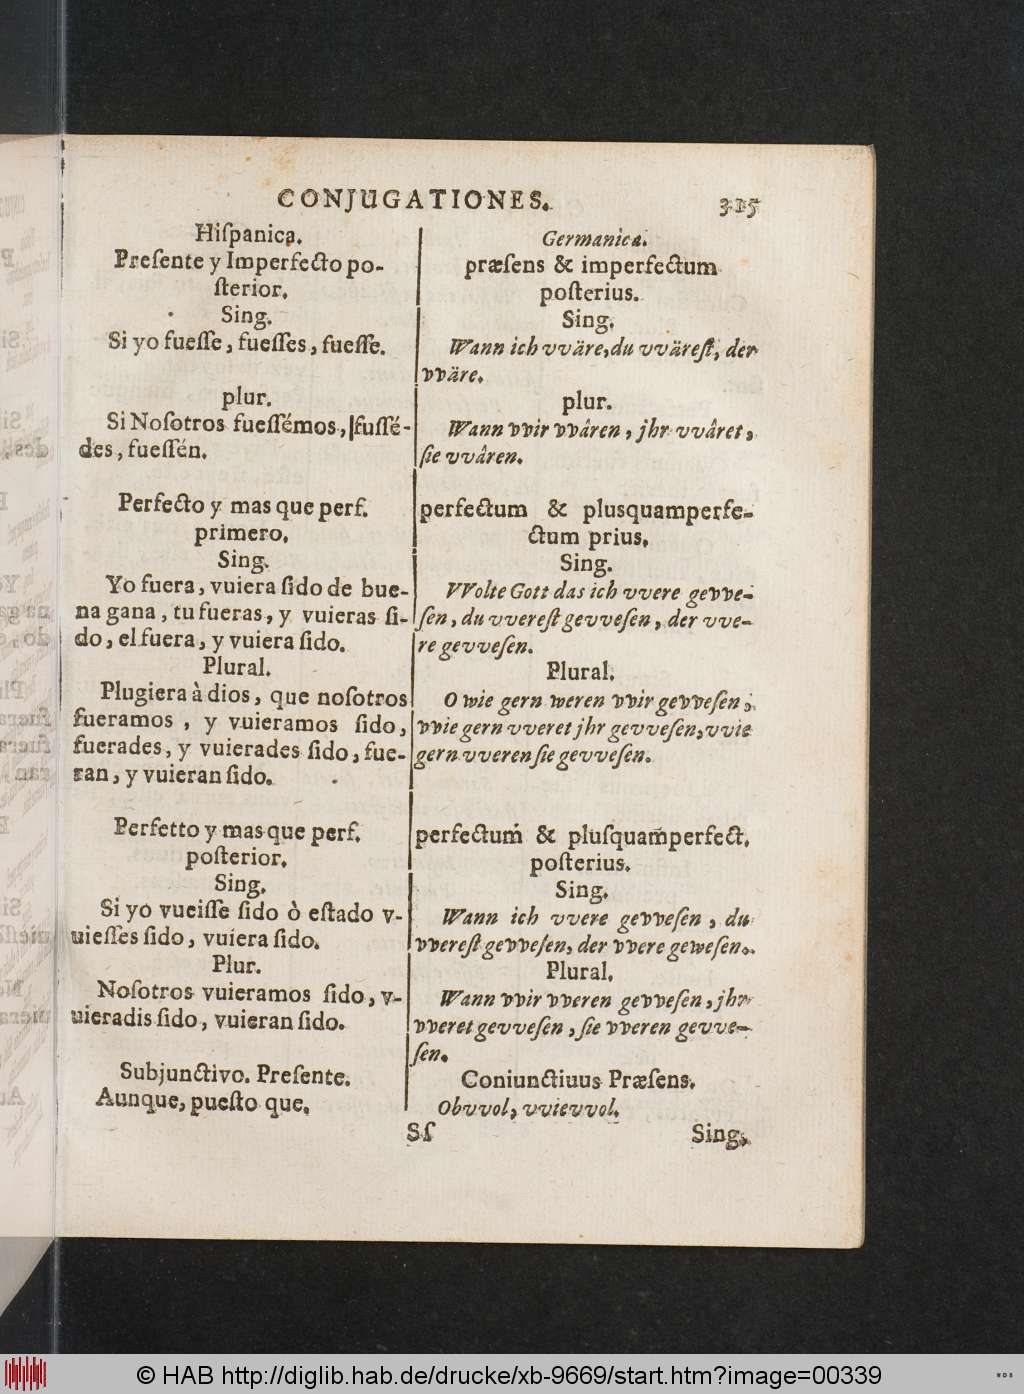 CONJUGATIONES. 315
Hiſpanica.
Preſente y Imperfecto po-
ſterior.
Sing.
Si yo fueſſe, fueſſes, fueſſe.
plur.
Si Noſotros fueſſémos, |fuſſé-
des, fueſſén.
Perfecto y mas que perf.
primero.
Sing.
Yo fuera, vuiera ſido de bue-
na gana, tu fueras, y vuieras ſi-
do, el fuera, y vuiera ſido.
Plural.
Plugiera à dios, que noſotros
fueramos, y vuieramos ſido,
fuerades, y vuierades ſido, fue-
ran, y vuieran ſido.
Perfetto y mas que perf.
poſterior.
Sing.
Si yo vueiſſe ſido ò eſtado v-
uieſſes ſido, vuiera ſido.
Plur.
Noſotros vuieramos ſido, v-
uieradis ſido, vuieran ſido.
Subjunctivo. Preſente.
Aunque, pueſto que,
Germanica.
præſens & imperfectum
poſterius.
Sing.
Wann ich vväre, du vväreſt, der
vväre.
plur.
Wann vvir vvâren, jhr vvâret,
ſie vvâren.
perfectum & plusquamperfe-
ctum prius.
Sing.
VVolte Gott das ich vvere gevve-
ſen, du vvereſt gevveſen, der vve-
re gevveſen.
Plural.
O wie gern weren vvir gevveſen,
vvie gern vveret jhr gevveſen, vvie
gern vveren ſie gevveſen.
perfectum & pluſquam̃perfect.
poſterius.
Sing.
Wann ich vvere gevveſen, du
vvereſt gevveſen, der vvere geweſen.
Plural.
Wann vvir vveren gevveſen, jhr
vveret gevveſen, ſie vveren gevve-
ſen.
Coniunctiuus Præſens.
Obvvol, vvievvol.
Sſ Sing.
© HAB http://diglib.hab.de/drucke/xb-9669/start.htm?image=00339